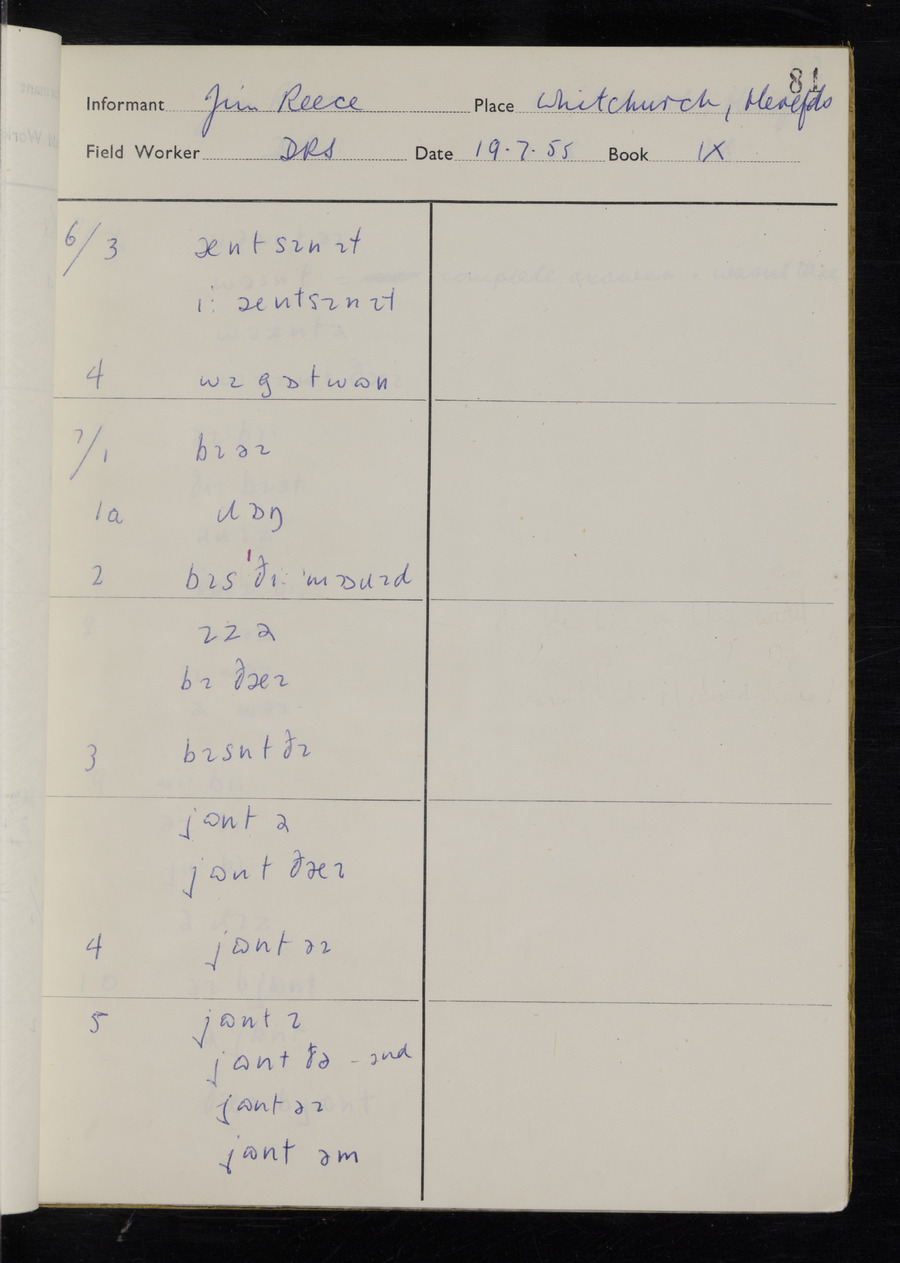 81
Informant Jim Reece Place Whitchurch, Herefds
Field Worker DRS Date 19.7.55 Book IX
6/3 ænt sɪn ɪt
iː æntsɪn ɪt
4 wɪ gɒt wɒn
7/1 bɪ əɪ
1a
2 bɪs ðɪː
ɪz ə
bɪ ðæɪ
3 bɪsnt ðɪ
jɒnt ə
jɒnt ðæɪ
4 jɒnt əɪ
5 jɒnt ɪ
jɒnt ðə - ɪnd
jɒnt əɪ
jɒnt əm